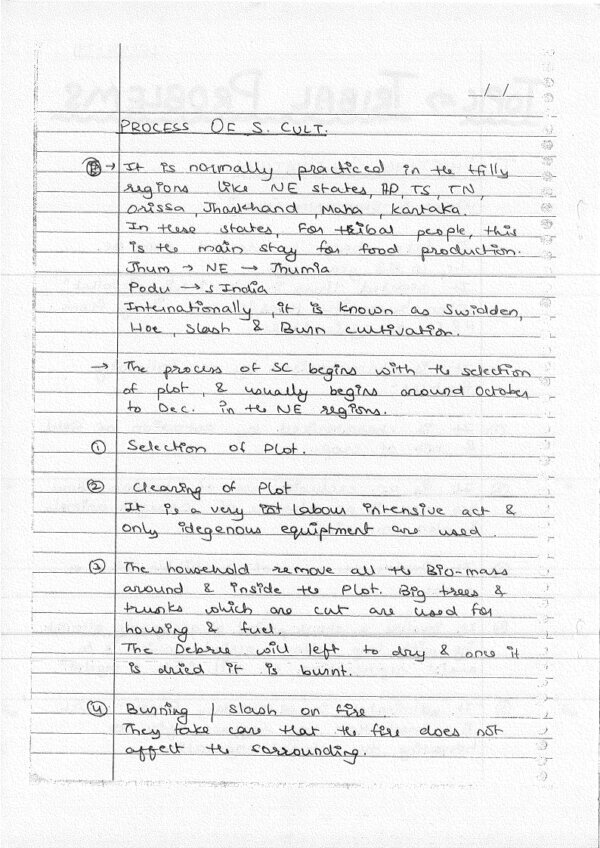 / /
PROCESS OF S. CULT.
→ It is normally practiced in the Hilly
regions like NE states, AP, TS, TN,
Orissa, Jharkhand, Maha, kantaka.
In these states, For tribal people, this
is the main stay for food production.
Jhum → NE → Jhumia
Podu → S India
Internationally, it is known as Swidden,
Hoe, Slash & Burn cultivation.
→ The process of SC begins with the selection
of plot, & usually begins around October
to Dec. in the NE regions.
① Selection of Plot.
② Clearing of Plot
It is a very labour intensive act &
only idegenous equiptment are used.
③ The household remove all the Bio-mass
around & inside the Plot. Big trees &
trunks which are cut are used for
housing & fuel.
The Debrie will left to dry & once it
is dried it is burnt.
④ Burning / slash on fire
They take care that the fire does not
affect the sorrounding.